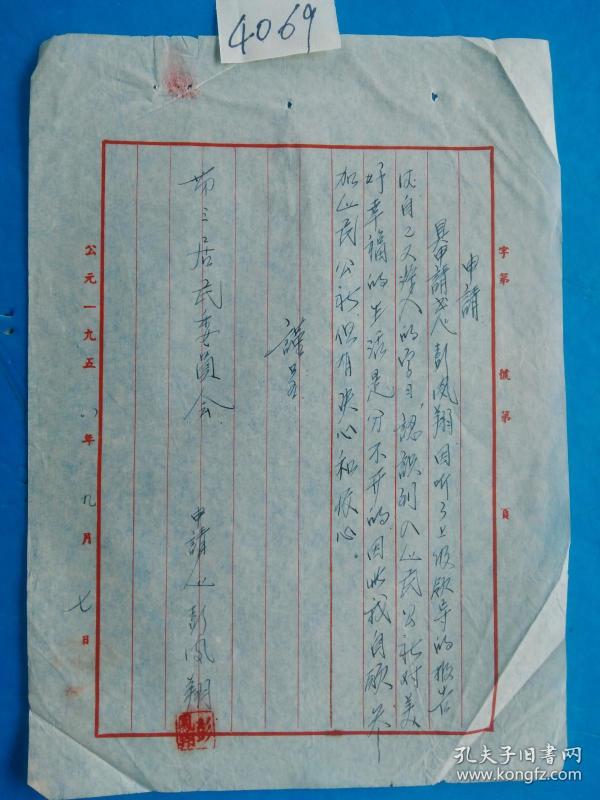 4069
字第 號第 頁
申請
具申請书人彭凤翔因听了上级領导的报告
使自己又深入的学习,認識到人民公社对美
好幸福的生活是分不开的,因此我自願参
加人民公社,但有决心和恆心。
謹呈
第三居民委員会
申請人彭凤翔
彭鳳翔
公元一九五八年九月七日
孔夫子旧書网
www.kongfz.com